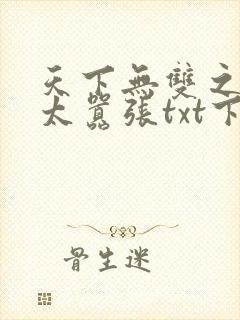 天下無雙之
太囂張txt下
骨生迷